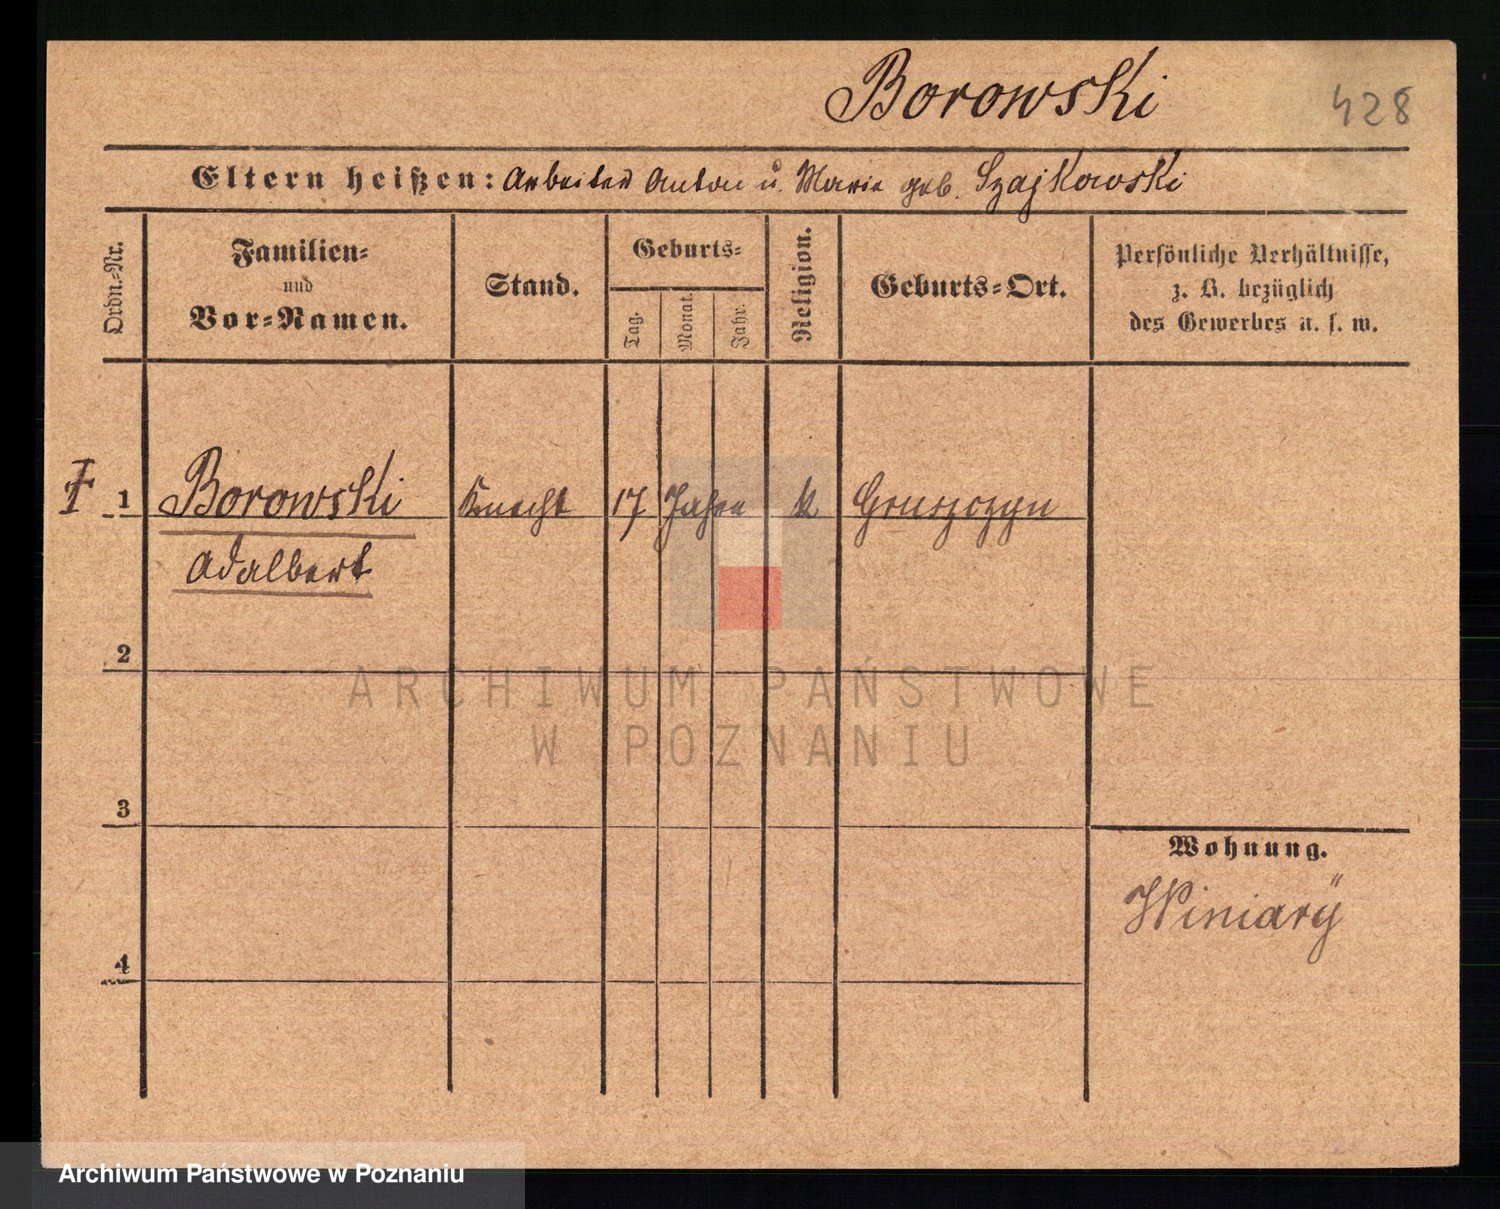 Borowski 428
Eltern heißen: Arbeiter Anton u. Marie geb. Szajkowski
Ordn.-Nr.
Familien-
und
Vor-Namen.
Stand.
Geburts-
Tag.
Monat.
Jahr.
Religion.
Geburts-Ort.
Persönliche Verhältnisse,
z. B. bezüglich
des Gewerbes u. s. w.
1 Borowski Knecht 17 Jahre k Gruszczyn
Adalbert
2
ARCHIWUM PAŃSTWOWE
W POZNANIU
3
Wohnung.
Winiarÿ
4
Archiwum Państwowe w Poznaniu